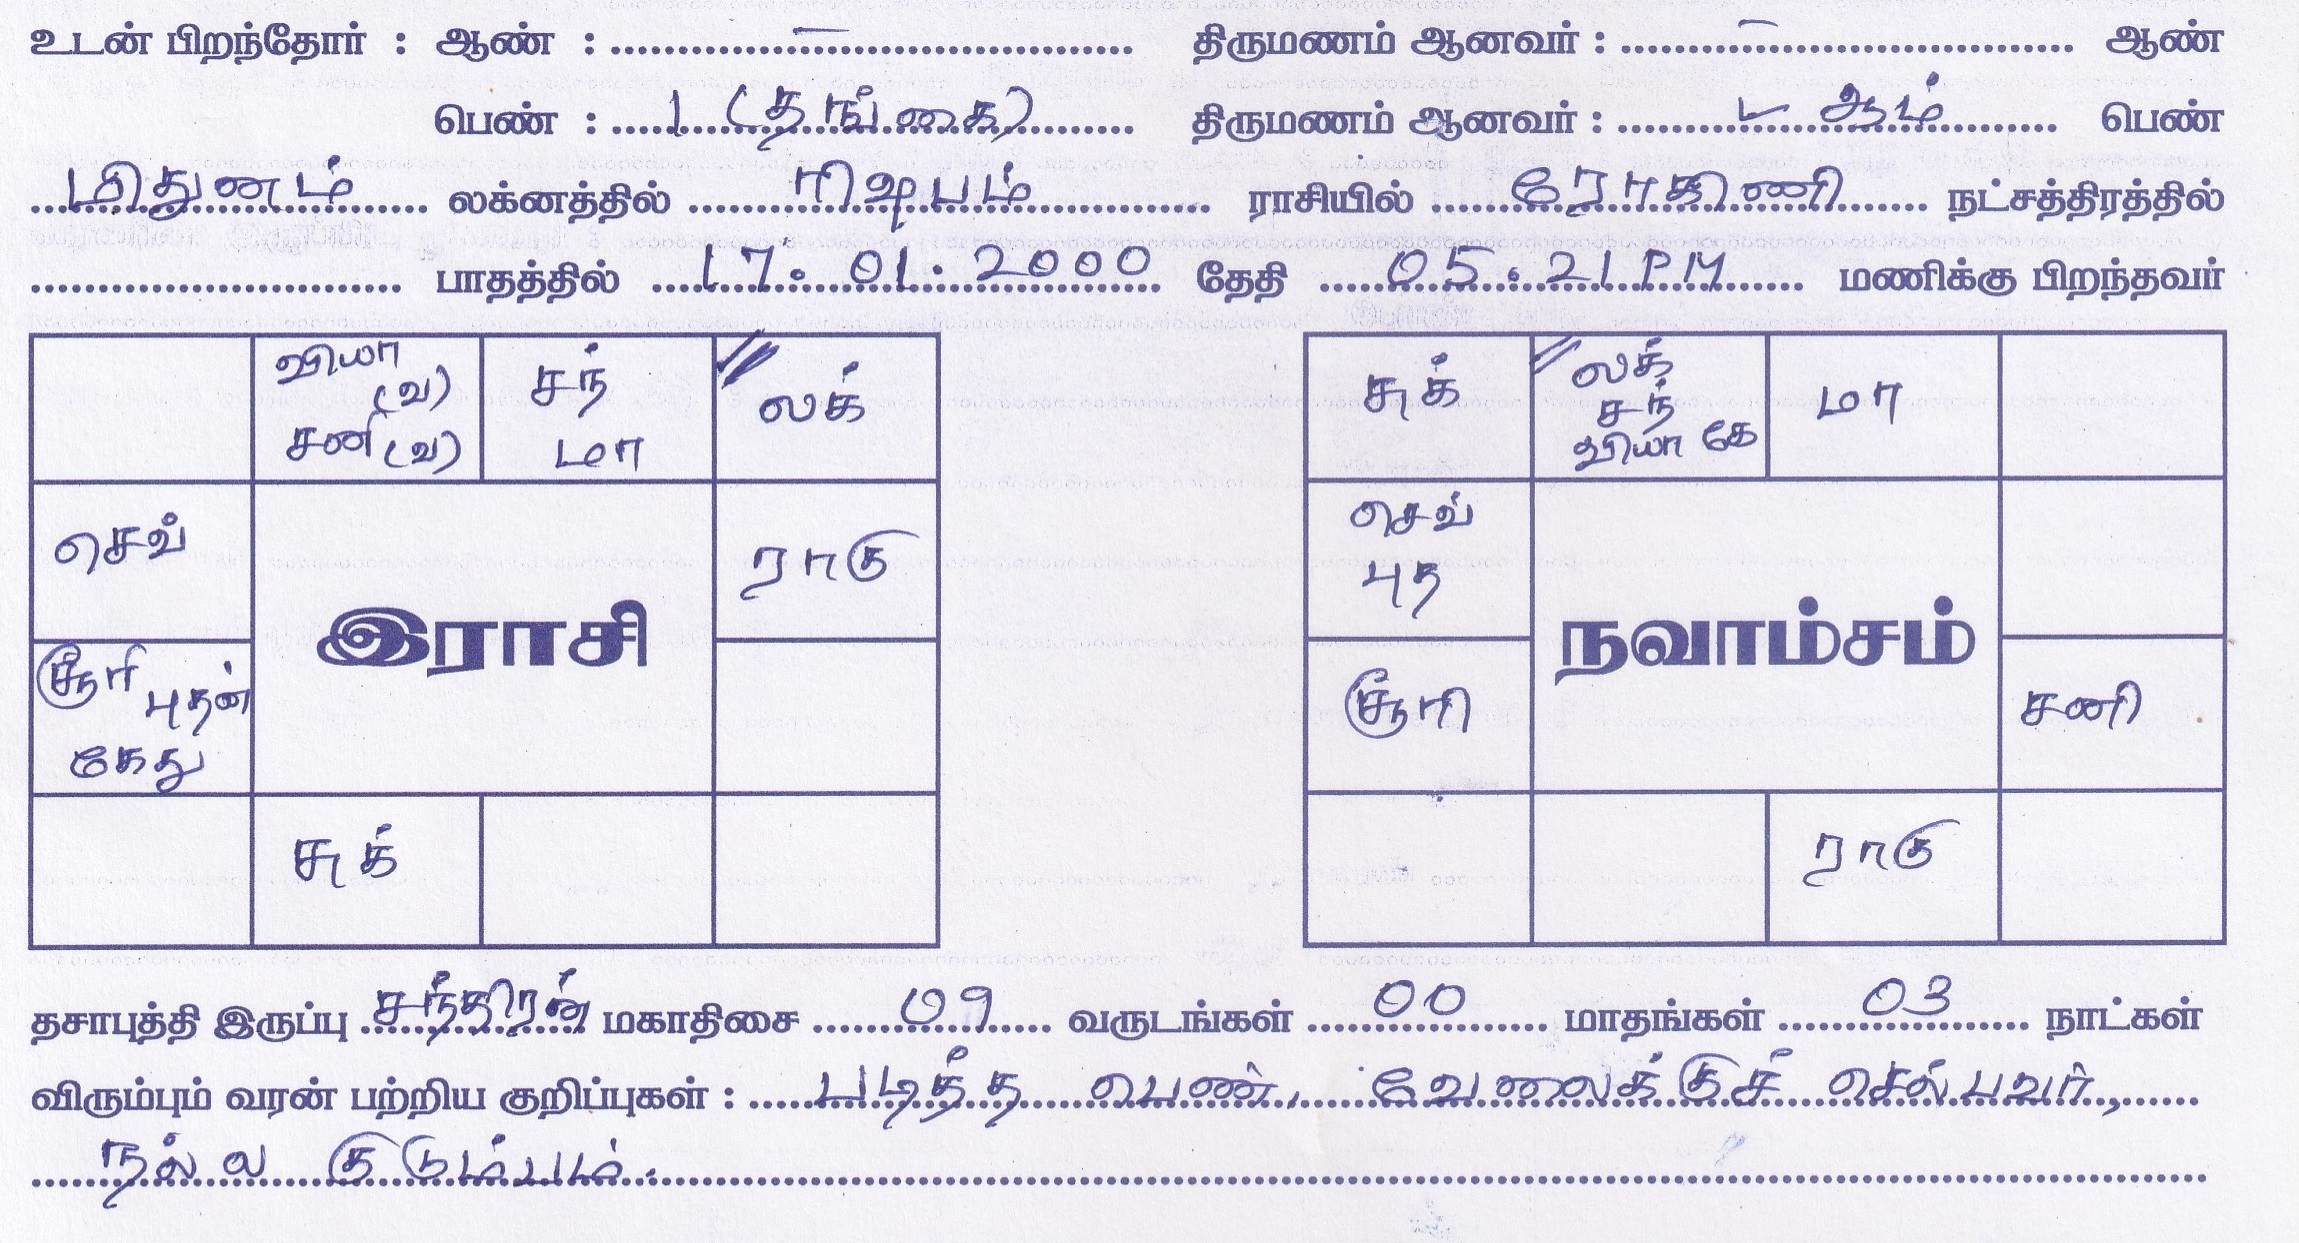 உடன் பிறந்தோர் : ஆண் : – திருமணம் ஆனவர் : – ஆண்
பெண் : 1 (தங்கை) திருமணம் ஆனவர் : ஆம் பெண்
மிதுனம் லக்னத்தில் ரிஷபம் ராசியில் ரோகிணி நட்சத்திரத்தில்
பாதத்தில் 17.01.2000 தேதி 05.21PM மணிக்கு பிறந்தவர்
வியா (வ) சனி (வ)
சந் மா
லக்
செவ்
ராகு
இராசி
சூரி புதன் கேது
சுக்
சுக்
லக் சந் வியா கே
மா
செவ் புத
நவாம்சம்
சூரி
சனி
ராகு
தசாபுத்தி இருப்பு சந்திரன் மகாதிசை 09 வருடங்கள் 00 மாதங்கள் 03 நாட்கள்
விரும்பும் வரன் பற்றிய குறிப்புகள் : படித்த பெண், வேலைக்குச் செல்பவர்,
நல்ல குடும்பம்.